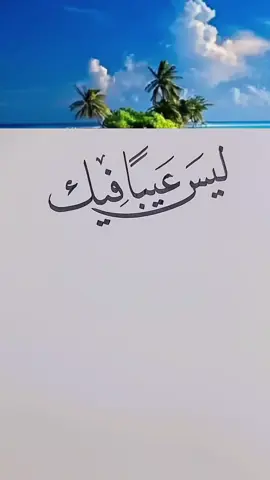 ليسَ عَيبًا فِيك